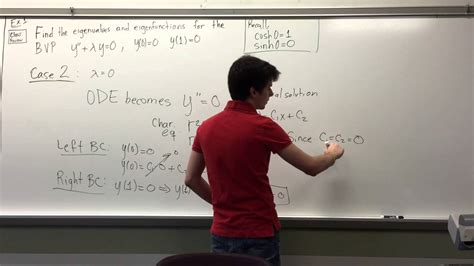 Ex 3
Find the eigenvalues and eigenfunctions for the
BVP y''+λy=0, y(0)=0 y(1)=0
Recall
cosh0=1
sinh0=0
Case 2: λ=0
ODE becomes y''=0
al solution
Char. eq r²
C₁x + C₂
Since C₁=C₂=0
Left BC: y(0)=0
y(0)=C₁0+C₂
Right BC: y(1)=0 ⇒ y(1)
=0